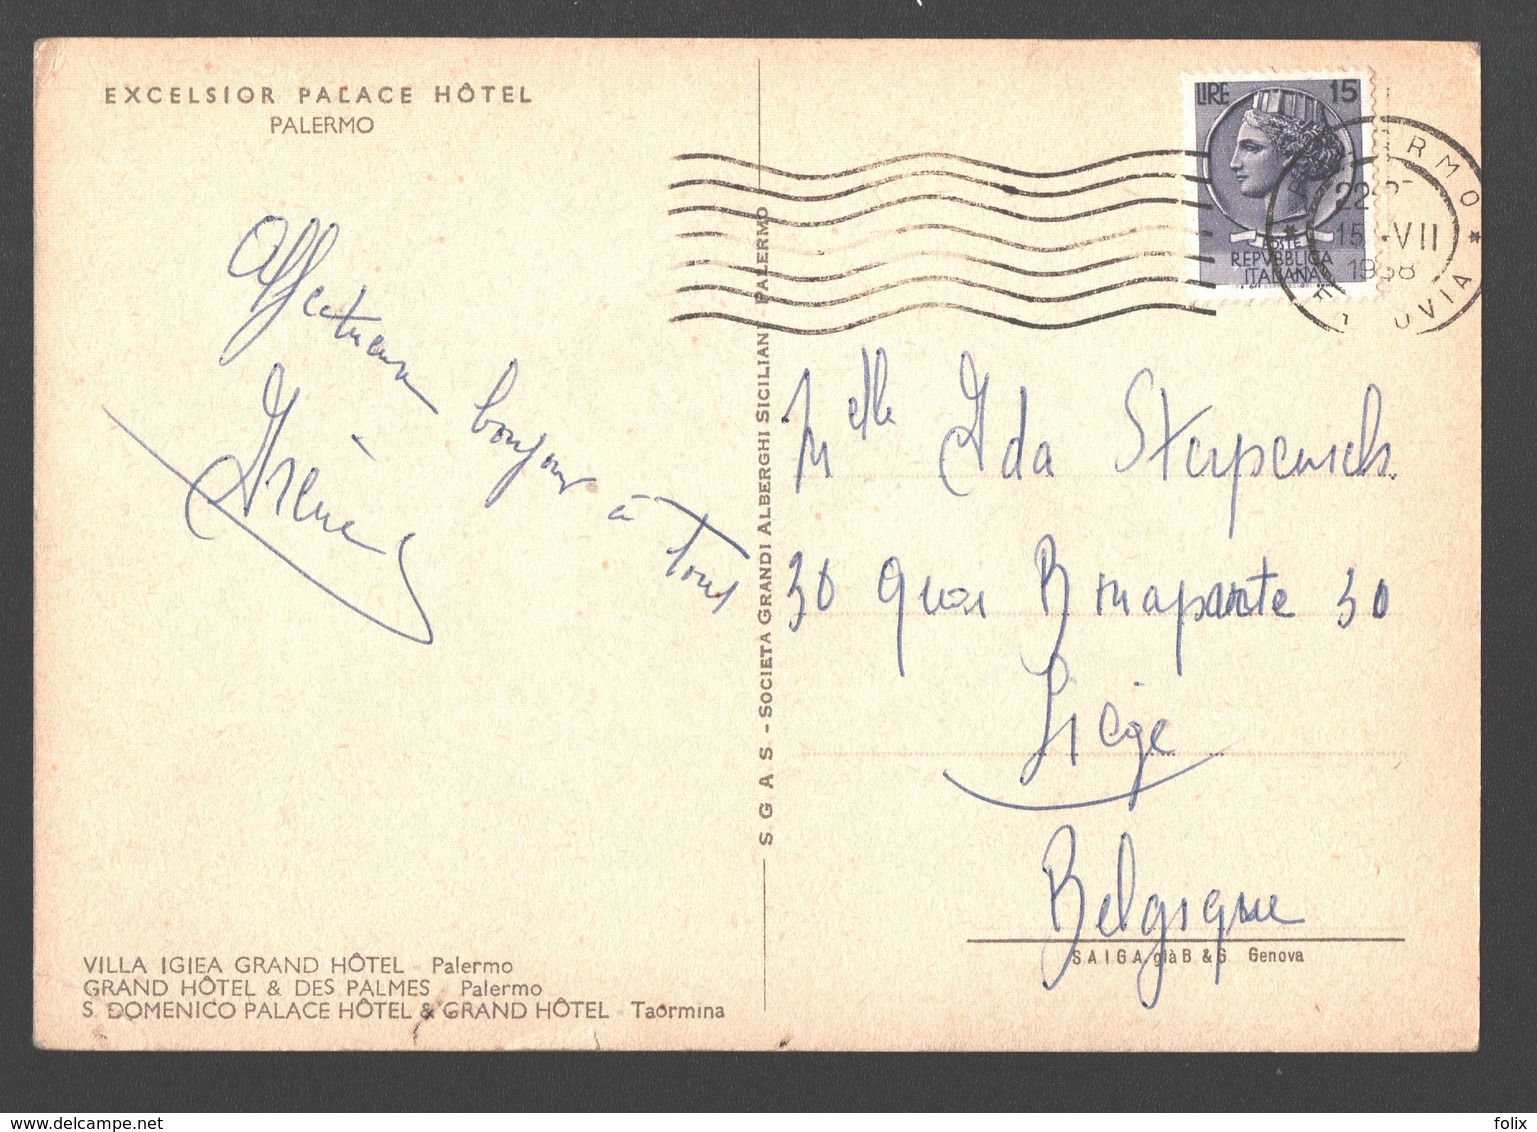 EXCELSIOR PALACE HÔTEL
PALERMO
LIRE 15
POSTE
REPVBBLICA
ITALIANA
15 -VII
FERROVIA
Affectueux bonjour à tous
Irène
S. G. A. S. - SOCIETA GRANDI ALBERGHI SICILIANI - PALERMO
Melle Ida
30 Quai Bonaparte 30
Liège
Belgique
S.A.I.G.A. già B. & G. Genova
VILLA IGIEA GRAND HÔTEL - Palermo
GRAND HÔTEL & DES PALMES Palermo
S. DOMENICO PALACE HÔTEL & GRAND HÔTEL - Taormina
www.delcampe.net
folix